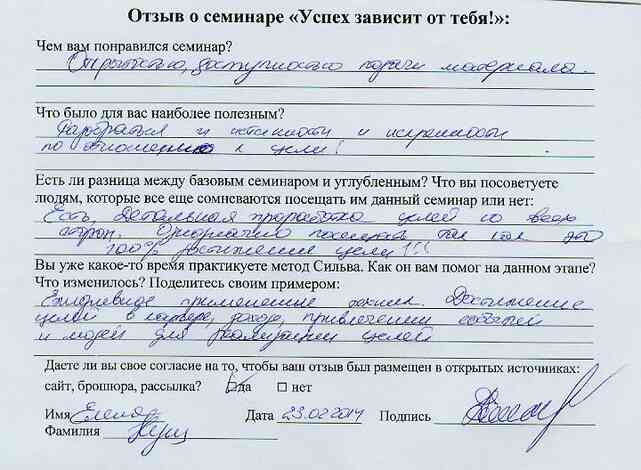 Отзыв о семинаре «Успех зависит от тебя!»:
Чем вам понравился семинар?
Открытостью, доступностью подачи материала.
Что было для вас наиболее полезным?
Разобраться и истинности и искренности
по отношению к цели!
Есть ли разница между базовым семинаром и углубленным? Что вы посоветуете
людям, которые все еще сомневаются посещать им данный семинар или нет:
Есть, детальная проработка целей со всех
сторон. Однозначно посещать так как это
100% достижения цели!!!
Вы уже какое-то время практикуете метод Сильва. Как он вам помог на данном этапе?
Что изменилось? Поделитесь своим примером:
Ежедневное применение техник. Достижение
целей в карьере, доходе, привлечении событий
и людей для реализации целей
Даете ли вы свое согласие на то, чтобы ваш отзыв был размещен в открытых источниках:
сайт, брошюра, рассылка? да нет
Имя Елена Дата 23.02.2014 Подпись
Фамилия